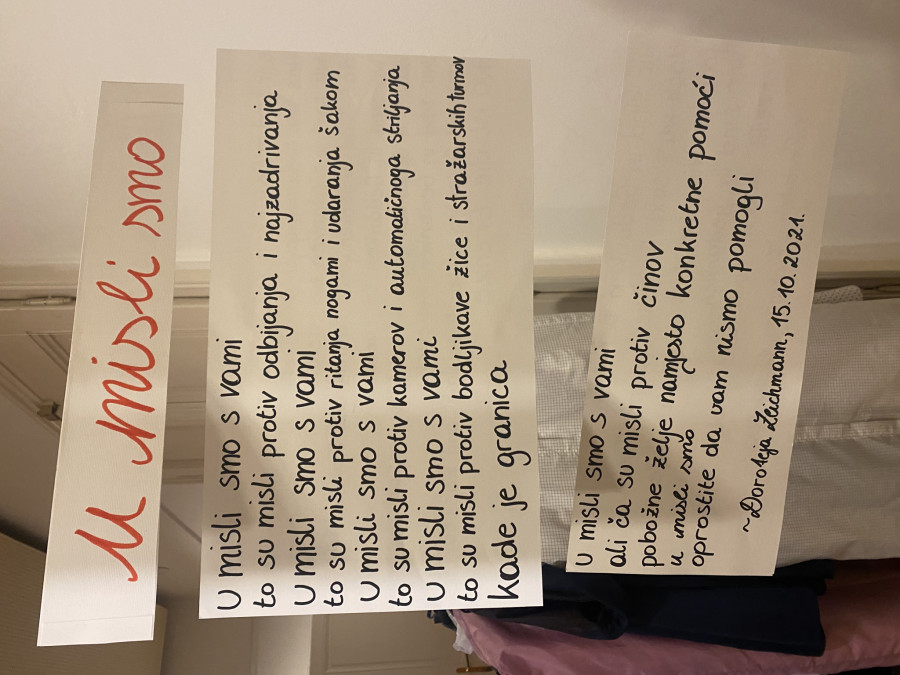 U misli smo
U misli smo s vami
to su misli protiv odbijanja i najzadrivanja
U misli smo s vami
to su misli protiv ritanja nogami i udaranja šakom
U misli smo s vami
to su misli protiv kamerov i automatičnoga striljanja
U misli smo s vami
to su misli protiv bodljikave žice i stražarskih turmov
kade je granica
U misli smo s vami
ali ča su misli protiv činov
pobožne želje namjesto konkretne pomoći
u misli smo
oprostite da vam nismo pomogli
~Doroteja Zeichmann, 15.10.2021.